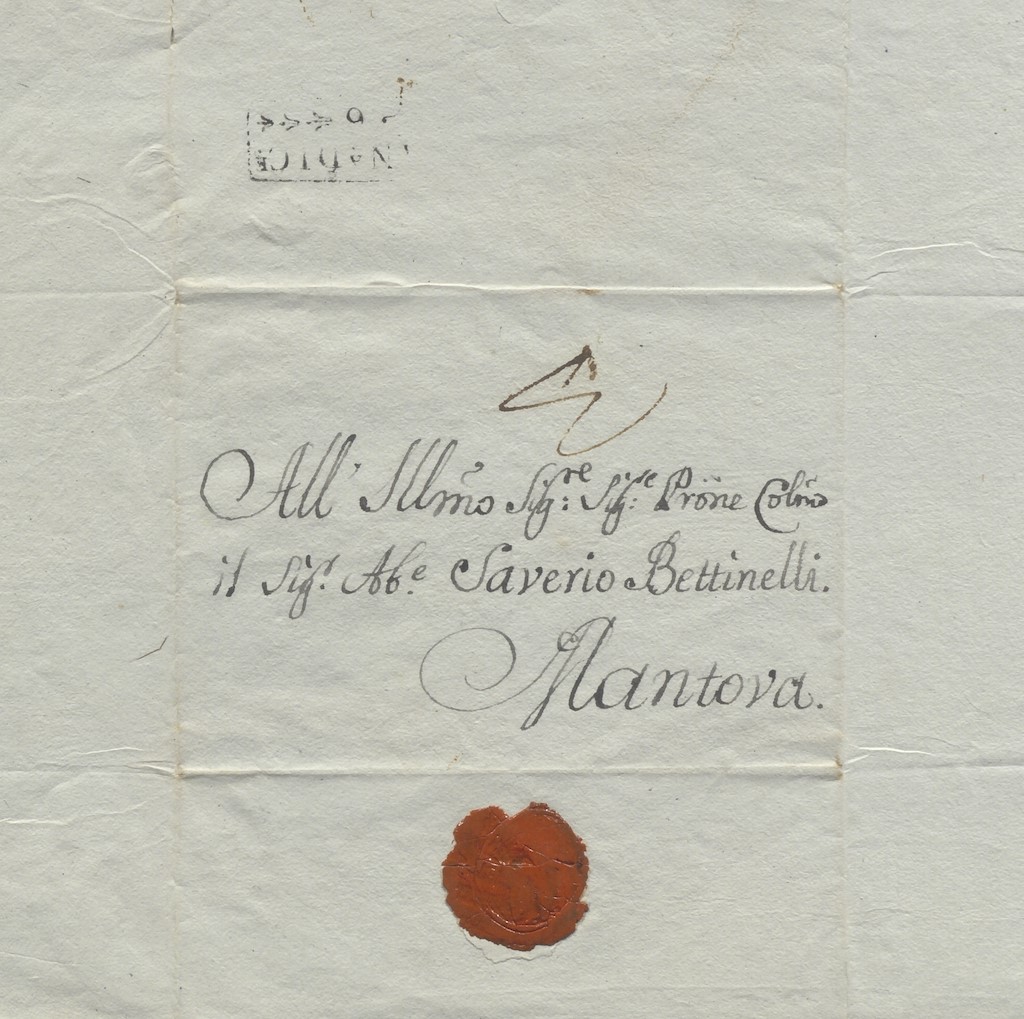 All' Illmo Sigre: Sigre: Prone Colmo
il Sigr. Abe. Saverio Bettinelli.
Mantova.